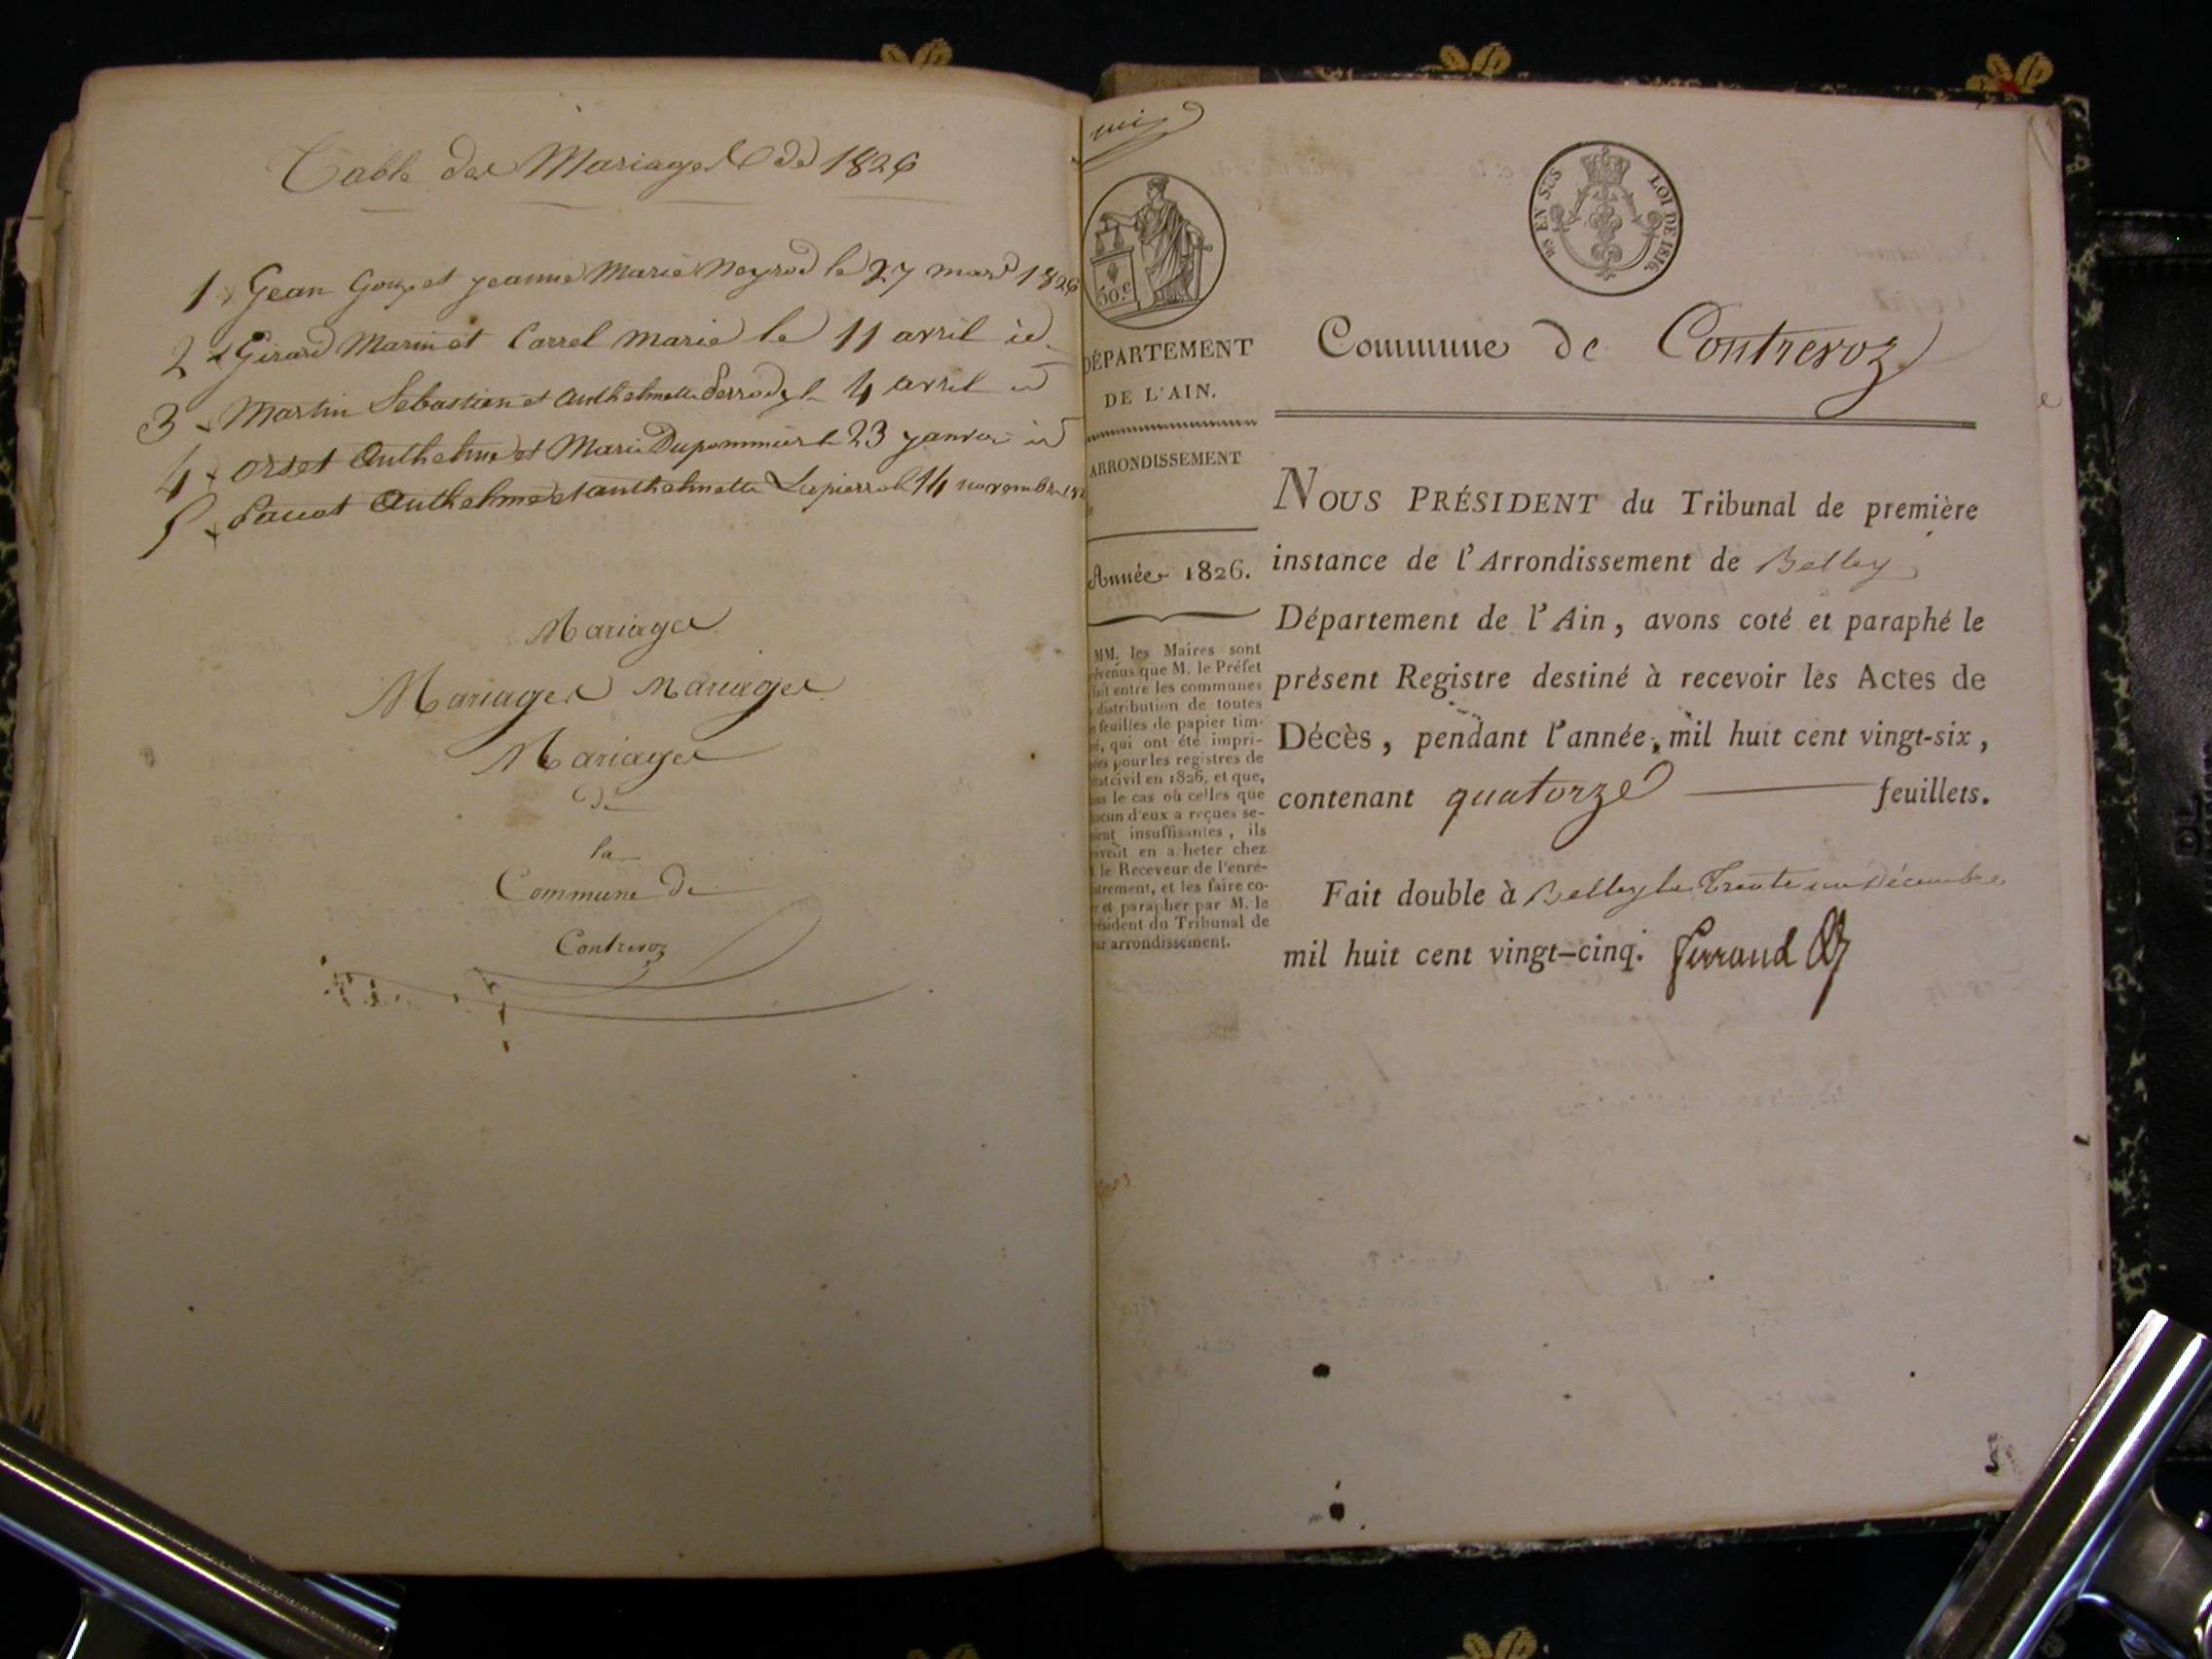 Table des Mariages de 1826
1 Gean Goux et jeanne Marie Neyrod le 27 mars 1826
2 Girard Marin et Carrel marie le 11 avril id
3 Martin Sebastien et Anthelmette Perrod le 4 avril id
4 orset Anthelme et Marie Dupommier le 23 janvier id
5 Anthelme et anthelmette Lapierre le 14 novembre
Mariages
Mariages Mariages
Mariages
de
la
Commune de
Contrevoz
50.c
DÉPARTEMENT
DE L'AIN.
ARRONDISSEMENT
Année 1826.
MM. les Maires sont
que M. le Préfet
fait entre les communes
distribution de toutes
feuilles de papier tim-
qui ont été impri-
pour les registres de
civil en 1826, et que,
le cas où celles que
d'eux a reçues se-
insuffisantes, ils
en acheter chez
le Receveur de l'enre-
et les faire co-
et parapher par M. le
du Tribunal de
arrondissement.
EN SUS LOI DE 1816.
Commune de Contrevoz
NOUS PRÉSIDENT du Tribunal de première
instance de l'Arrondissement de Belley
Département de l'Ain, avons coté et paraphé le
présent Registre destiné à recevoir les Actes de
Décès, pendant l'année mil huit cent vingt-six,
contenant quatorze feuillets.
Fait double à Belley le Trente un Décembre
mil huit cent vingt-cinq. Ferrand